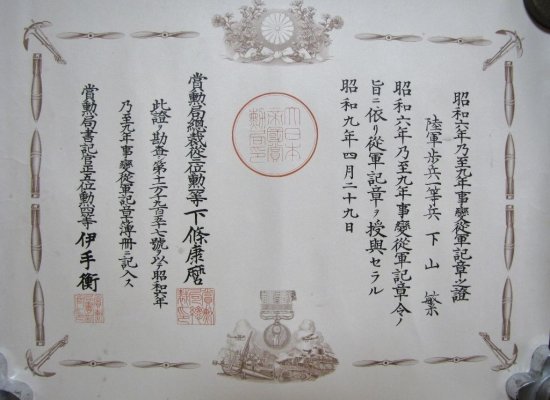 昭和六年乃至九年事變從軍記章之證
陸軍歩兵一等兵 下山 繁
昭和六年乃至九年事變從軍記章令ノ
旨ニ依リ從軍記章ヲ授與セラル
昭和九年四月二十九日
大日本
帝國賞
勲局印
賞勲局總裁從三位勲一等 下條康麿
此證ヲ勘査シ第十二万千九百五十七號ヲ以テ昭和六年
乃至九年事變從軍記章簿冊ニ記入ス
賞勲局書記官正五位勲四等 伊手衡